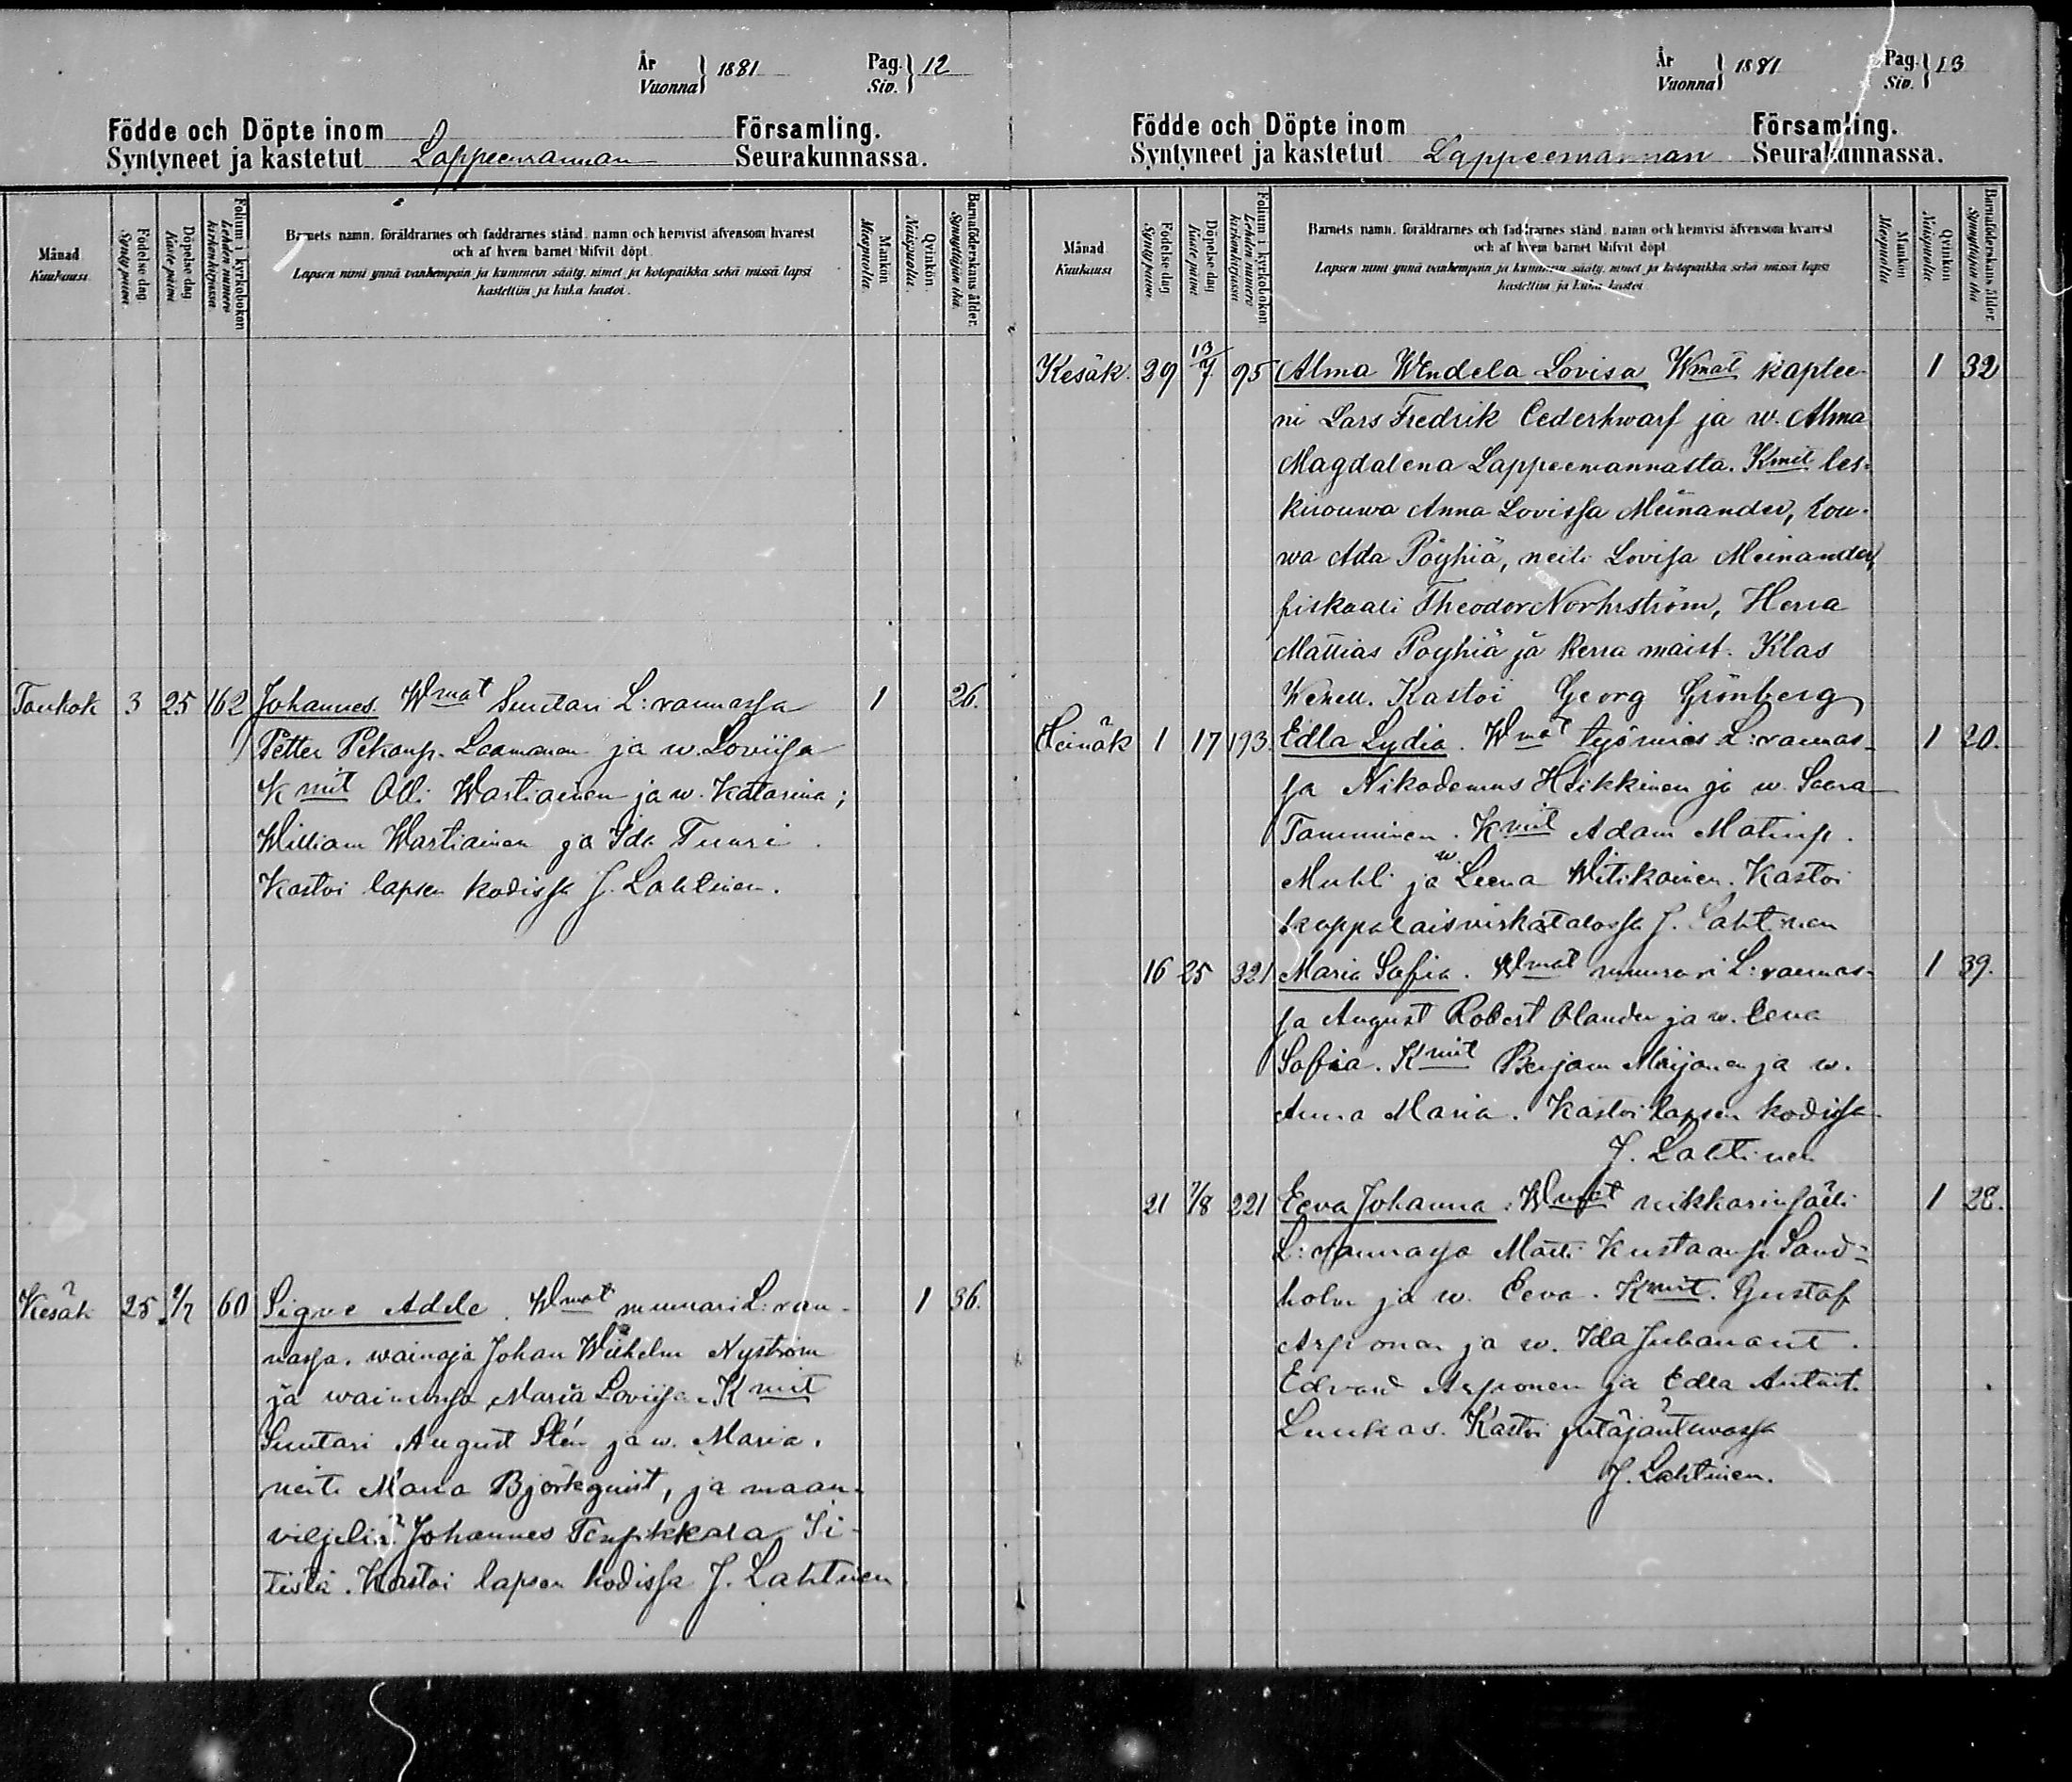 År
Vuonna } 1881
Pag.
Siv. } 12
Födde och Döpte inom Församling.
Syntyneet ja kastetut Lappeenrannan Seurakunnassa.
Månad
Kuukausi
Födelse dag
Synty päivä
Döpelse dag
Kaste päivä
Folium i kyrkoboken
Lehden numero
kirkonkirjassa
Barnets namn, föräldrarnes och faddrarnes stånd, namn och hemvist äfvensom hvarest
och af hvem barnet blifvit döpt
Lapsen nimi ynnä vanhempain ja kummein sääty, nimet ja kotopaikka sekä missä lapsi
kastettiin ja kuka kastoi.
Mankön
Miespuolia
Qvinkön
Naispuolia
Barnaföderskans ålder.
Synnyttäjän ikä.
Toukok 3 25 162 Johannes. Wmat Suutari L:rannassa 1 26.
Petter Pekanp. Laamanen ja w. Loviisa
Kmit Olli Wartiainen ja w. Katarina;
William Wartiainen ja Ida Tuuri.
Kastoi lapsen kodissa J. Lahtinen.
Kesäk 25 2/7 60 Signe Adele. Wmat muurari L:ran- 1 36.
nassa. wainaja Johan Wilhelm Nyström
ja waimonsa Maria Loviisa. Kmit
Suutari August Stén ja w. Maria.
neiti Maria Björkqvist, ja maan-
viljeliä Johannes Si-
tistä. Kastoi lapsen kodissa J. Lahtinen
År
Vuonna } 1881
Pag.
Siv. } 13
Födde och Döpte inom Församling.
Syntyneet ja kastetut Lappeenrannan Seurakunnassa.
Månad
Kuukausi
Födelse dag
Synty päivä
Döpelse dag
Kaste päivä
Folium i kyrkoboken
Lehden numero
kirkonkirjassa
Barnets namn, föräldrarnes och faddrarnes stånd, namn och hemvist äfvensom hvarest
och af hvem barnet blifvit döpt
Lapsen nimi ynnä vanhempain ja kummein sääty, nimet ja kotopaikka sekä missä lapsi
kastettiin ja kuka kastoi
Mankön
Miespuolia
Qvinkön
Naispuolia
Barnaföderskans ålder.
Synnyttäjän ikä
Kesäk. 29 13/7 95 Alma Wendela Lovisa Wmat kaptee- 1 32
ni Lars Fredrik Cederhwarf ja w. Alma
Magdalena Lappeenrannasta. Kmit les-
kirouwa Anna Lovissa Meinander, rou-
wa Ada Pöyhiä, neiti Lovisa Meinander,
fiskaali Theodor Norhrström, Herra
Mattias Pöyhiä ja herra maist. Klas
Kastoi Georg Grönberg
Heinäk 1 17 193 Edla Lydia. Wmat työmies L:rannas- 1 20.
sa Nikodemus Heikkinen ja w. Saara
Tamminen. Kmit Adam Matinp.
Muhli ja w. Leena Witikainen. Kastoi
kappalaisvirkatalossa J. Lahtinen
16 25 321 Maria Sofia. Wmat muurari L:rannas- 1 39.
sa August Robert Olander ja w. Eeva
Sofia. Kmit Benjam Mrijonen ja w.
Anna Maria. Kastoi lapsen kodissa
J. Lahtinen
21 7/8 221 Eeva Johanna. Wmat nikkarinsälli 1 28.
L:rannassa Matti Kustaanp. Sand-
holm ja w. Eeva. Kmit. Gustaf
Arponen ja w. Ida Juhanant.
Edvard Arponen ja Edla Antint.
Luukas. Kastoi pitäjäntuvassa
J. Lahtinen.